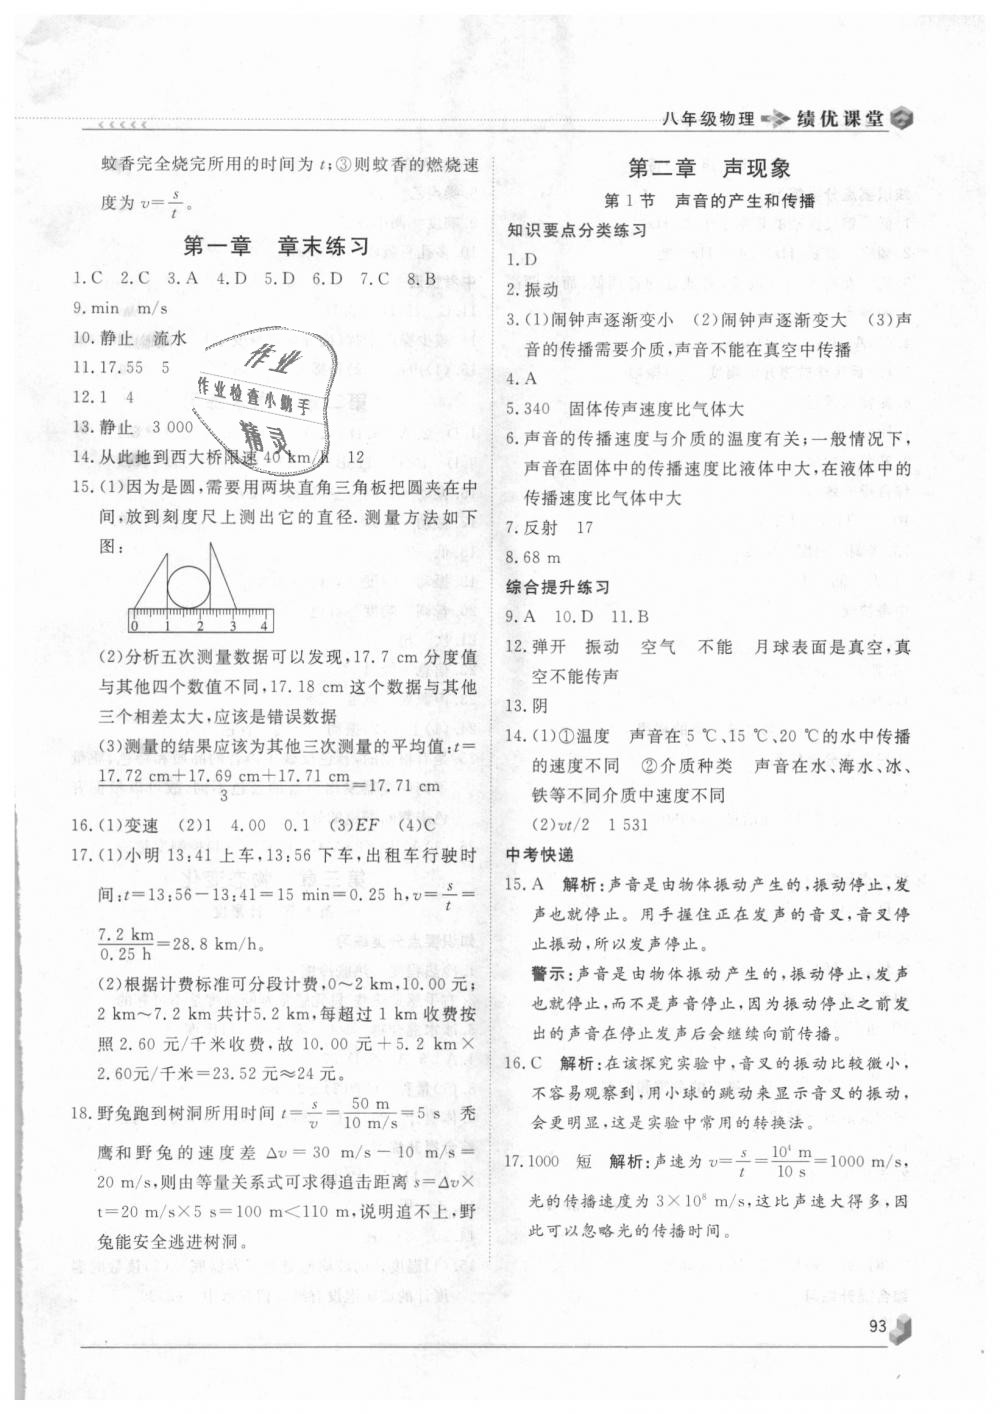 八年级物理 绩优课堂
蚊香完全烧完所用的时间为 t;③则蚊香的燃烧速
度为 v=s/t。
第一章 章末练习
1.C 2.C 3.A 4.D 5.D 6.D 7.C 8.B
9.min m/s
10.静止 流水
11.17.55 5
12.1 4
13.静止 3 000
14.从此地到西大桥限速 40 km/h 12
15.(1)因为是圆,需要用两块直角三角板把圆夹在中
间,放到刻度尺上测出它的直径.测量方法如下
图:
0 1 2 3 4
(2)分析五次测量数据可以发现,17.7 cm 分度值
与其他四个数值不同,17.18 cm 这个数据与其他
三个相差太大,应该是错误数据
(3)测量的结果应该为其他三次测量的平均值:t=
(17.72 cm+17.69 cm+17.71 cm)/3=17.71 cm
16.(1)变速 (2)1 4.00 0.1 (3)EF (4)C
17.(1)小明 13:41 上车,13:56 下车,出租车行驶时
间:t=13:56-13:41=15 min=0.25 h,v=s/t=
7.2 km/0.25 h=28.8 km/h。
(2)根据计费标准可分段计费,0~2 km,10.00 元;
2 km~7.2 km 共计5.2 km,每超过 1 km 收费按
照 2.60 元/千米收费,故 10.00 元+5.2 km×
2.60元/千米=23.52 元≈24 元。
18.野兔跑到树洞所用时间 t=s/v=50 m/10 m/s=5 s 秃
鹰和野兔的速度差 Δv=30 m/s-10 m/s=
20 m/s,则由等量关系式可求得追击距离 s=Δv×
t=20 m/s×5 s=100 m<110 m,说明追不上,野
兔能安全逃进树洞。
作业
作业检查小助手
精灵
第二章 声现象
第 1 节 声音的产生和传播
知识要点分类练习
1.D
2.振动
3.(1)闹钟声逐渐变小 (2)闹钟声逐渐变大 (3)声
音的传播需要介质,声音不能在真空中传播
4.A
5.340 固体传声速度比气体大
6.声音的传播速度与介质的温度有关;一般情况下,
声音在固体中的传播速度比液体中大,在液体中的
传播速度比气体中大
7.反射 17
8.68 m
综合提升练习
9.A 10.D 11.B
12.弹开 振动 空气 不能 月球表面是真空,真
空不能传声
13.阴
14.(1)①温度 声音在 5 ℃、15 ℃、20 ℃的水中传播
的速度不同 ②介质种类 声音在水、海水、冰、
铁等不同介质中速度不同
(2)vt/2 1 531
中考快递
15.A 解析:声音是由物体振动产生的,振动停止,发
声也就停止。用手握住正在发声的音叉,音叉停
止振动,所以发声停止。
警示:声音是由物体振动产生的,振动停止,发声
也就停止,而不是声音停止,因为振动停止之前发
出的声音在停止发声后会继续向前传播。
16.C 解析:在该探究实验中,音叉的振动比较微小,
不容易观察到,用小球的跳动来显示音叉的振动,
会更明显,这是实验中常用的转换法。
17.1000 短 解析:声速为 v=s/t=10⁴ m/10 s=1000 m/s,
光的传播速度为 3×10⁸ m/s,这比声速大得多,因
此可以忽略光的传播时间。
93